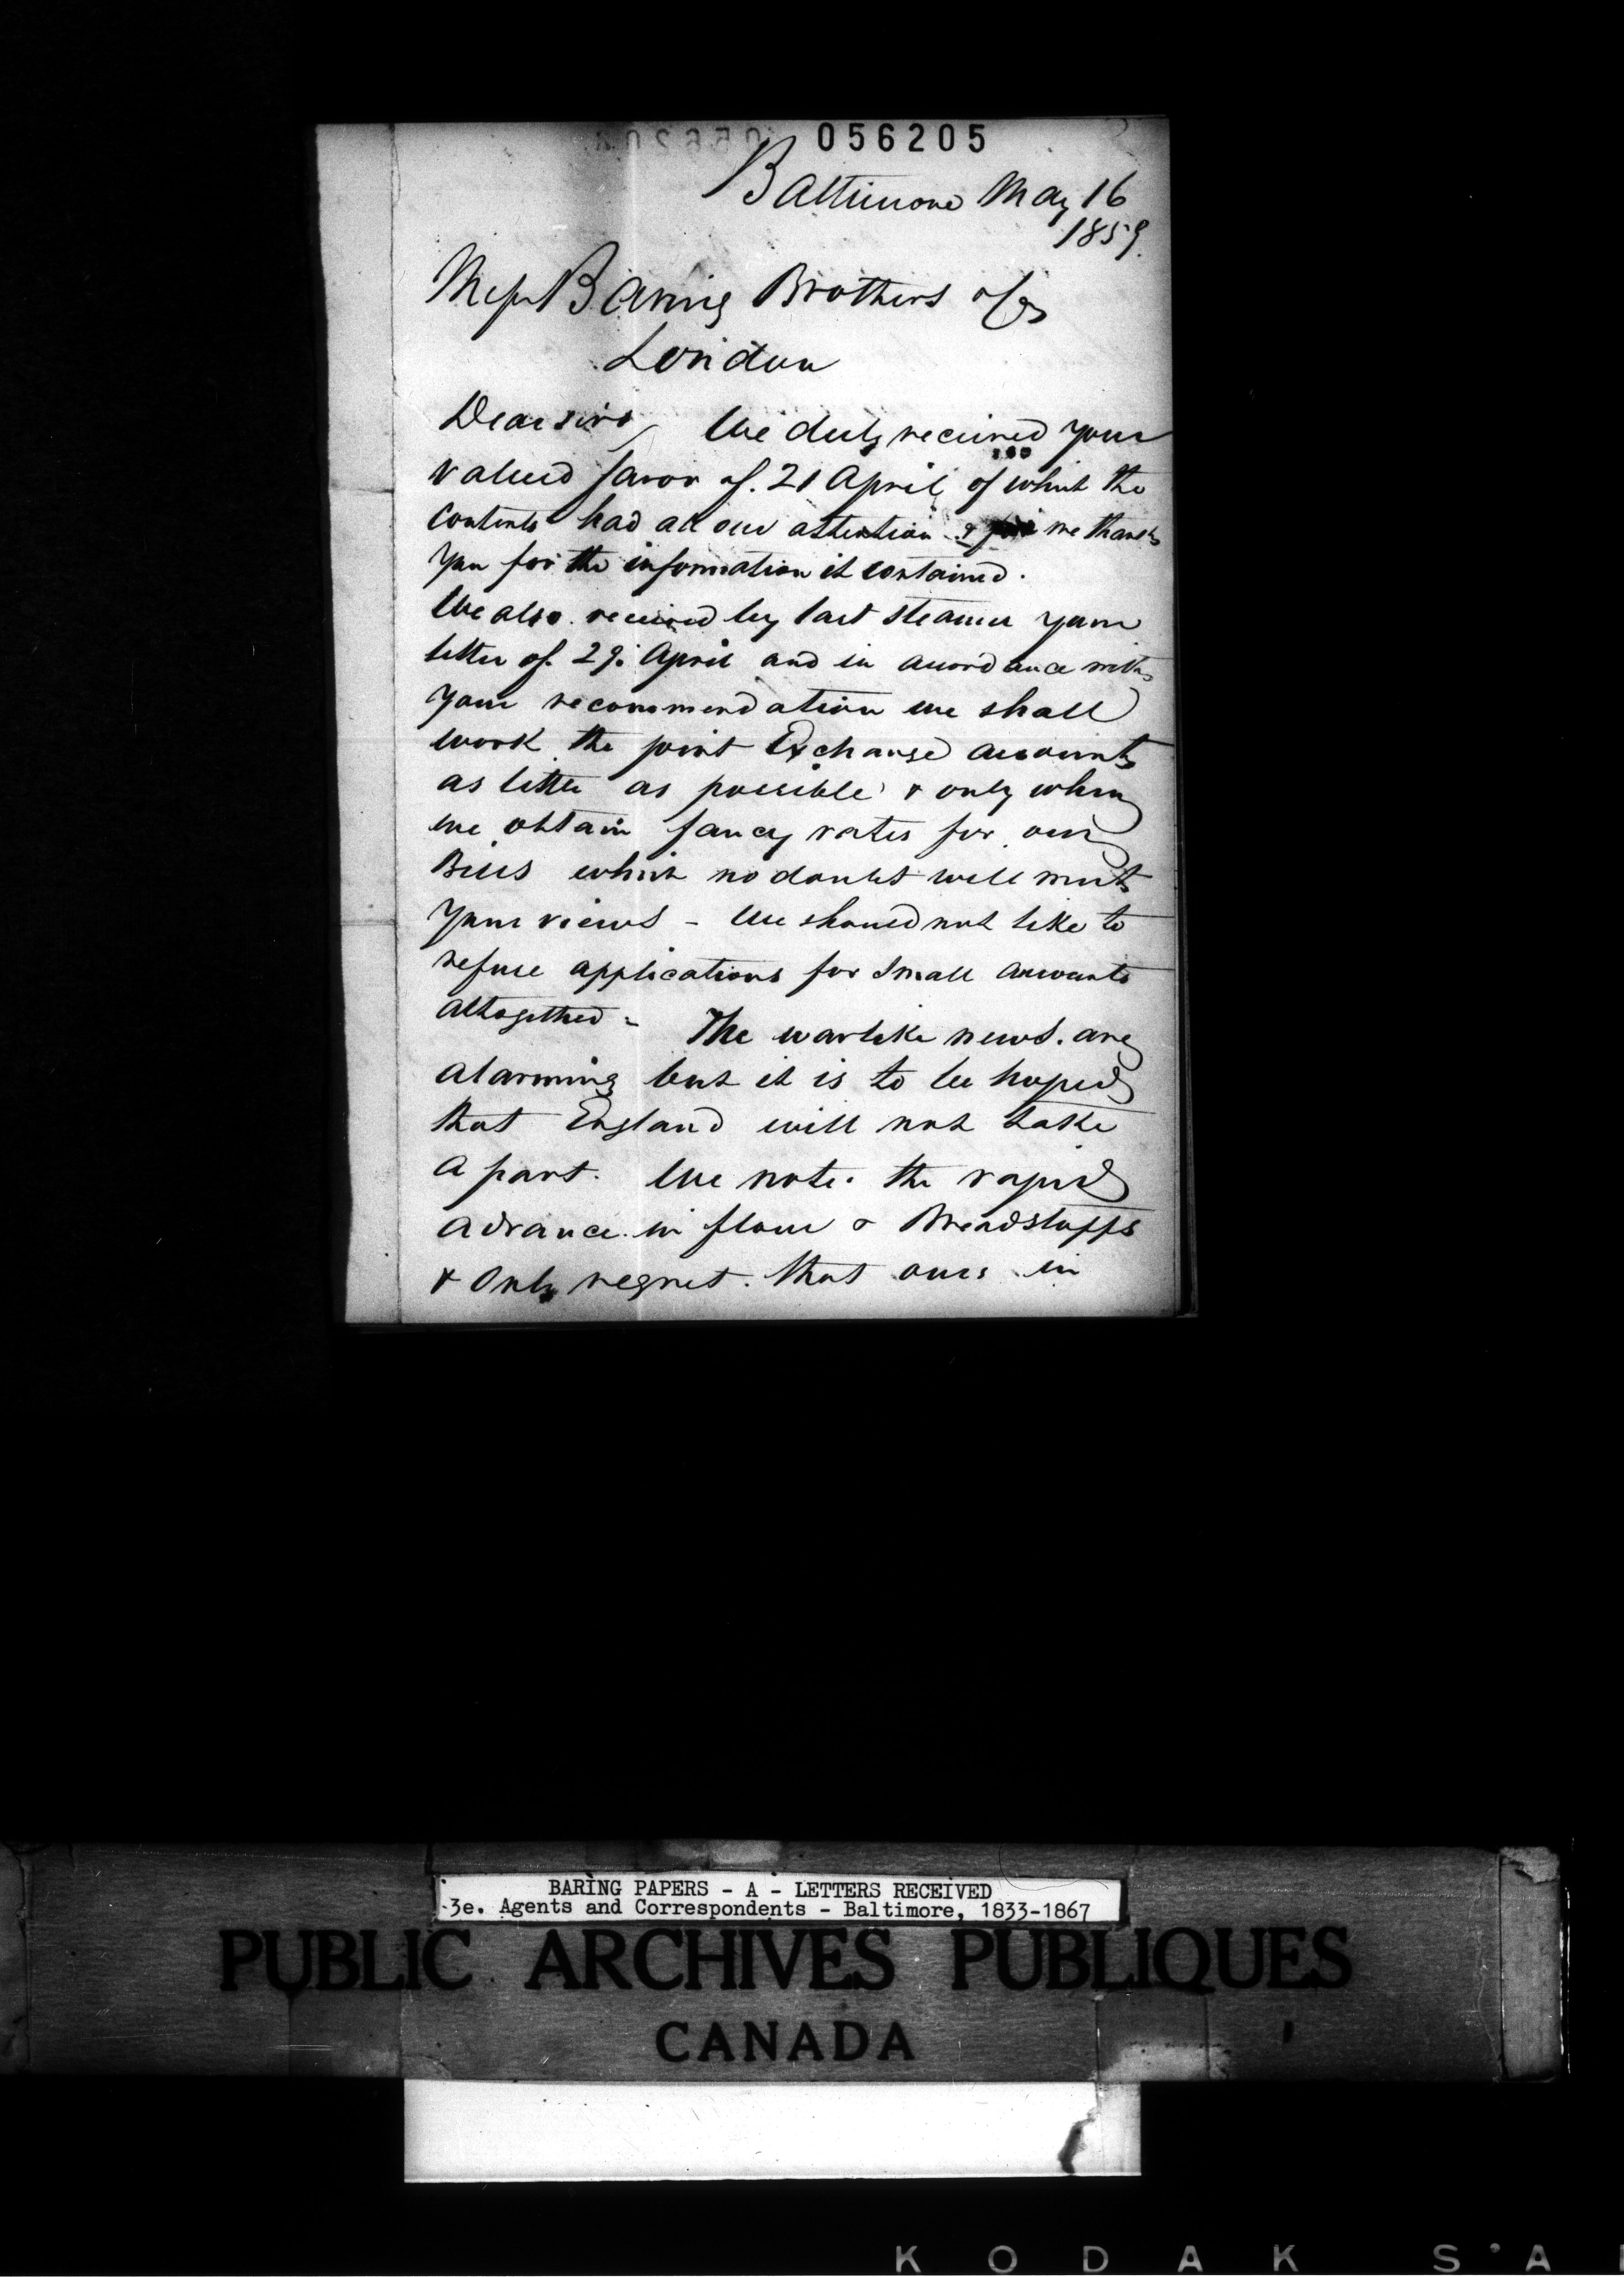 056205
Baltimore May 16
1859.
Messrs Baring Brothers & Co
London
Dear sirs We duly received your
valued favor of. 21 April of which the
contents had all our attention & we thank
you for the information it contained.
We also received by last steamer your
letter of. 29. April and in accordance with
your recommendation we shall
work the joint Exchange accounts
as little as possible & only when
we obtain fancy rates for our
Bills which no doubt will meet
your views - We should not like to
refuse applications for small amounts
altogether - The warlike news. are
alarming but it is to be hoped
that England will not take
a part. We note. the rapid
advance. in flour & Breadstuffs
& only regret. that ours in
BARING PAPERS - A - LETTERS RECEIVED
3e. Agents and Correspondents - Baltimore, 1833-1867
PUBLIC ARCHIVES PUBLIQUES
CANADA
KODAK S'A